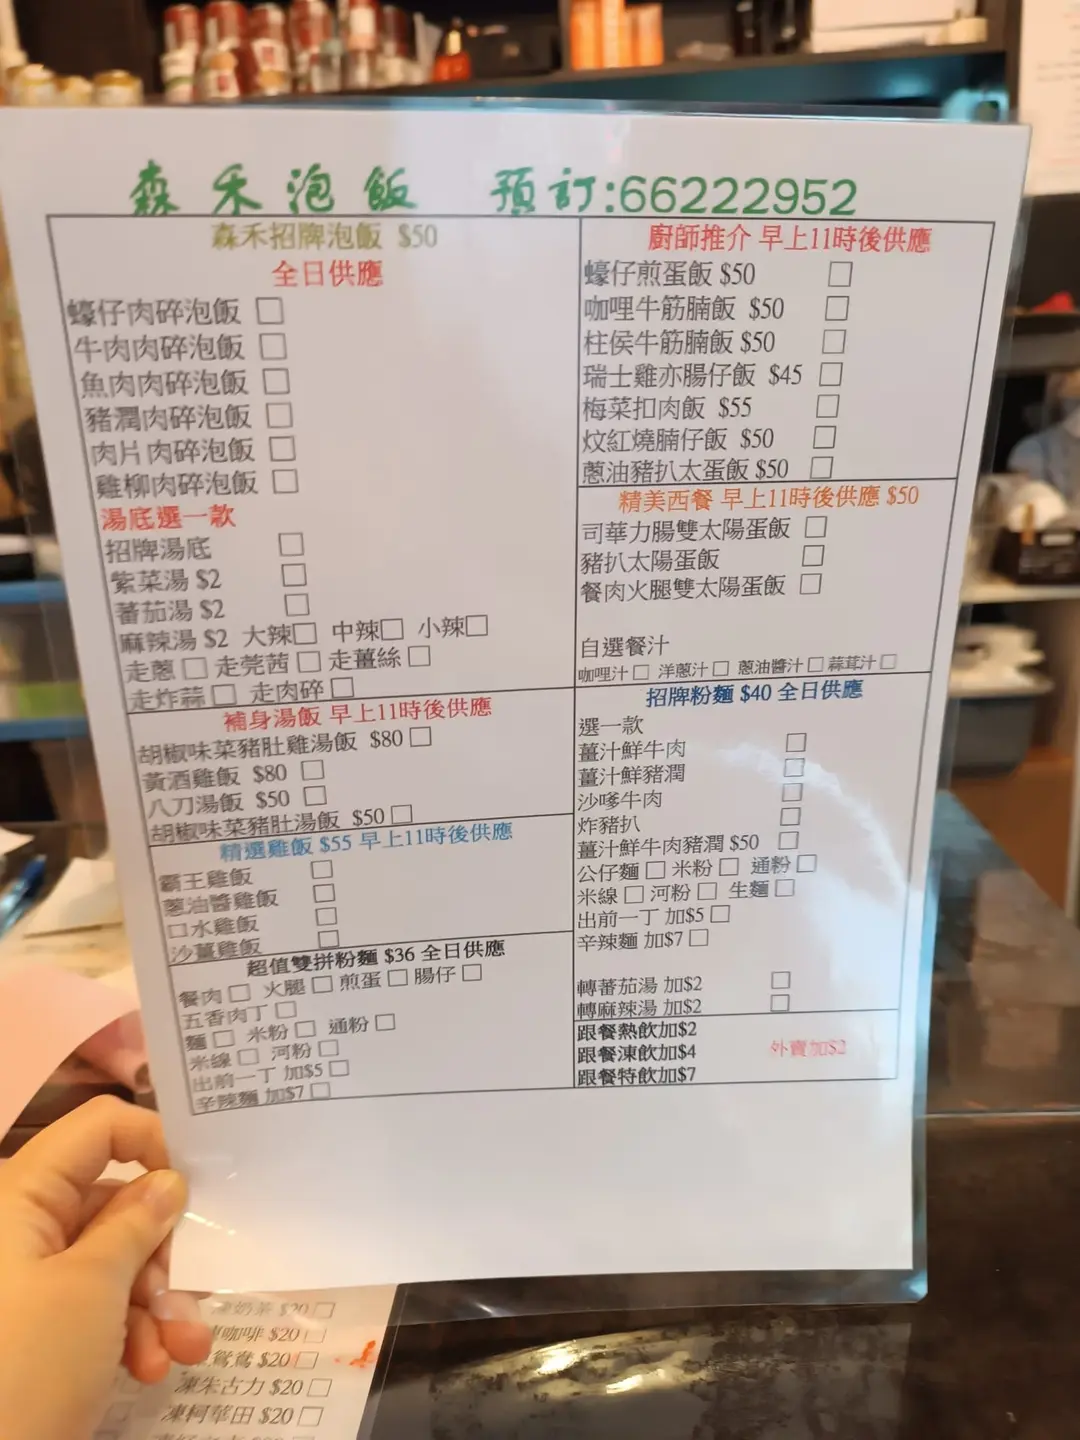 森禾泡飯 預訂:66222952
森禾招牌泡飯 $50
全日供應
蠔仔肉碎泡飯 □
牛肉肉碎泡飯 □
魚肉肉碎泡飯 □
豬潤肉碎泡飯 □
肉片肉碎泡飯 □
雞柳肉碎泡飯 □
湯底選一款
招牌湯底 □
紫菜湯 $2 □
蕃茄湯 $2 □
麻辣湯 $2 大辣□ 中辣□ 小辣□
走蔥□ 走莞茜□ 走薑絲□
走炸蒜□ 走肉碎□
補身湯飯 早上11時後供應
胡椒味菜豬肚雞湯飯 $80□
黃酒雞飯 $80 □
八刀湯飯 $50 □
胡椒味菜豬肚湯飯 $50□
精選雞飯 $55 早上11時後供應
霸王雞飯 □
蔥油醬雞飯 □
口水雞飯 □
沙薑雞飯 □
超值雙拼粉麵 $36 全日供應
餐肉□ 火腿□ 煎蛋□ 腸仔□
五香肉丁□
麵□ 米粉□ 通粉□
米線□ 河粉□
出前一丁 加$5□
辛辣麵 加$7□
廚師推介 早上11時後供應
蠔仔煎蛋飯 $50 □
咖哩牛筋腩飯 $50 □
柱侯牛筋腩飯 $50 □
瑞士雞亦腸仔飯 $45 □
梅菜扣肉飯 $55 □
炆紅燒腩仔飯 $50 □
蔥油豬扒太蛋飯 $50 □
精美西餐 早上11時後供應 $50
司華力腸雙太陽蛋飯 □
豬扒太陽蛋飯 □
餐肉火腿雙太陽蛋飯 □
自選餐汁
咖哩汁□ 洋蔥汁□ 蔥油醬汁□ 蒜茸汁□
招牌粉麵 $40 全日供應
選一款
薑汁鮮牛肉 □
薑汁鮮豬潤 □
沙嗲牛肉 □
炸豬扒 □
薑汁鮮牛肉豬潤 $50 □
公仔麵□ 米粉□ 通粉□
米線□ 河粉□ 生麵□
出前一丁 加$5□
辛辣麵 加$7□
轉蕃茄湯 加$2 □
轉麻辣湯 加$2 □
跟餐熱飲加$2
跟餐凍飲加$4
跟餐特飲加$7
外賣加$2
凍奶茶 $20□
凍咖啡 $20□
鴛鴦 $20□
凍朱古力 $20□
凍柯華田 $20□